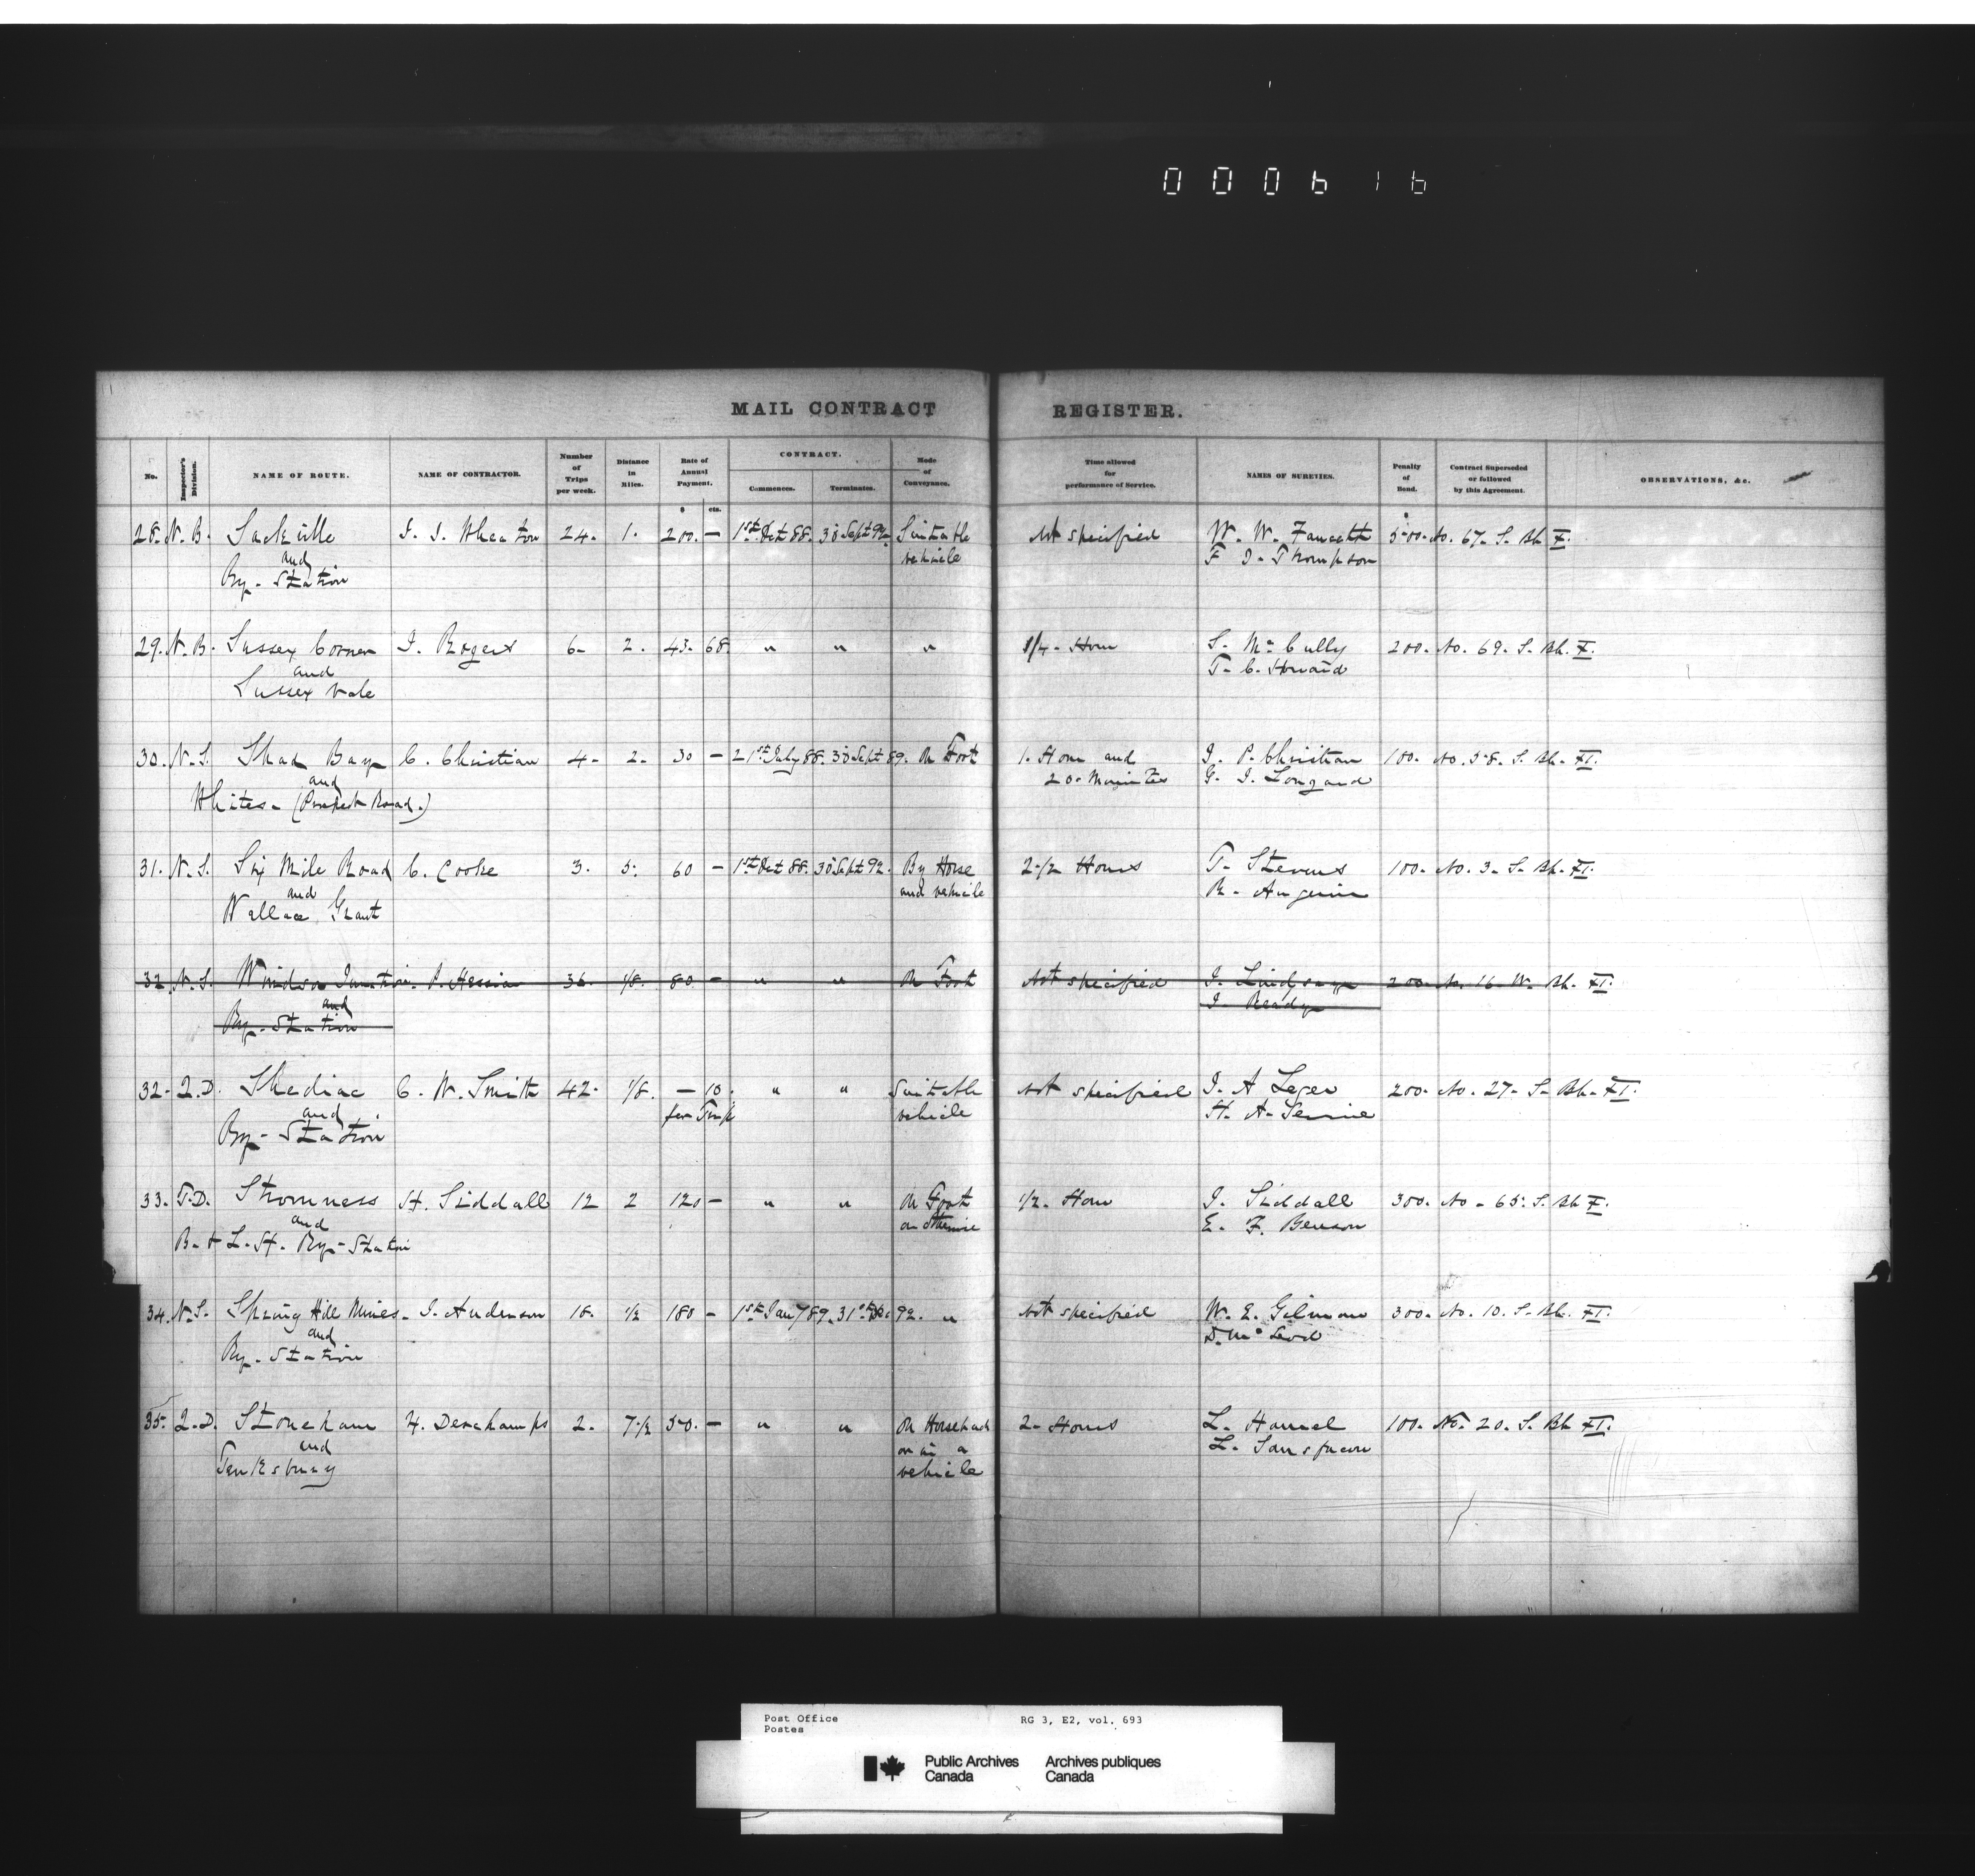 000616
MAIL CONTRACT REGISTER.
No. Inspector's Division. NAME OF ROUTE. NAME OF CONTRACTOR. Number of Trips per week. Distance in Miles. Rate of Annual Payment. $ cts. CONTRACT. Commences. Terminates. Mode of Conveyance. Time allowed for performance of Service. NAMES OF SURETIES. Penalty of Bond. Contract Superseded or followed by this Agreement. OBSERVATIONS, &c.
28. N.B. Sackville J. J. Wheaton 24. 1. 200. — 1st Oct 88. 30 Sept 92. Suitable Not specified W. W. Fawcett 500. No. 67. S. Bk X.
and vehicle F. J. Thompson
Ry. Station
29. N.B. Sussex Corner J. Rogers 6. 2. 43. 68. " " " 3/4. Hour S. McCully 200. No. 69. S. Bk. X.
and T. C. Howard
Sussex Vale
30. N.S. Shad Bay C. Christian 4. 2. 30 — 21st July 88. 30 Sept 89. On Foot 1. Hour and J. P. Christian 100. No. 58. S. Bk. XI.
and 20. Minutes G. J. Longard
Whites. (Prospect Road.)
31. N.S. Six Mile Road C. Cooke 3. 5. 60 — 1st Oct 88. 30 Sept 92. By Horse 2 1/2 Hours T. Stevens 100. No. 3. S. Bk. XI.
and and vehicle
Wallace Grant
32. N.S. Windsor Junction. P. Hessian 36. 1/8. 80. — " " On Foot Not specified J. Lindsay 200. No. 16. W. Bk. XI.
and J. Ready
Ry. Station
32. Q.D. Shediac C. W. Smith 42. 1/8. — 10. " " Suitable Not specified J. A Leger 200. No. 27. S. Bk. XI.
and per Trip vehicle
Ry. Station
33. T.D. Stromness H. Siddall 12 2 120 — " " On Foot 1/2. Hour J. Siddall 300. No. 65. S. Bk X.
and or otherwise E. F. Benson
B. & L. H. Ry. Station
34. N.S. Spring Hill Mines. J. Anderson 18. 1/2 180 — 1st Jany 89. 31st Dec 92. " Not specified W. E. Gilmour 300. No. 10. S. Bk. XI.
and D. McLeod
Ry. Station
35. Q.D. Stoneham F. Deschamps 2. 7 1/2 50. — " " On Horseback 2. Hours L. Hamel 100. No. 20. S. Bk XI.
and or in a L. Sansfacon
Tewkesbury vehicle
Post Office RG 3, E2, vol. 693
Postes
Public Archives Archives publiques
Canada Canada